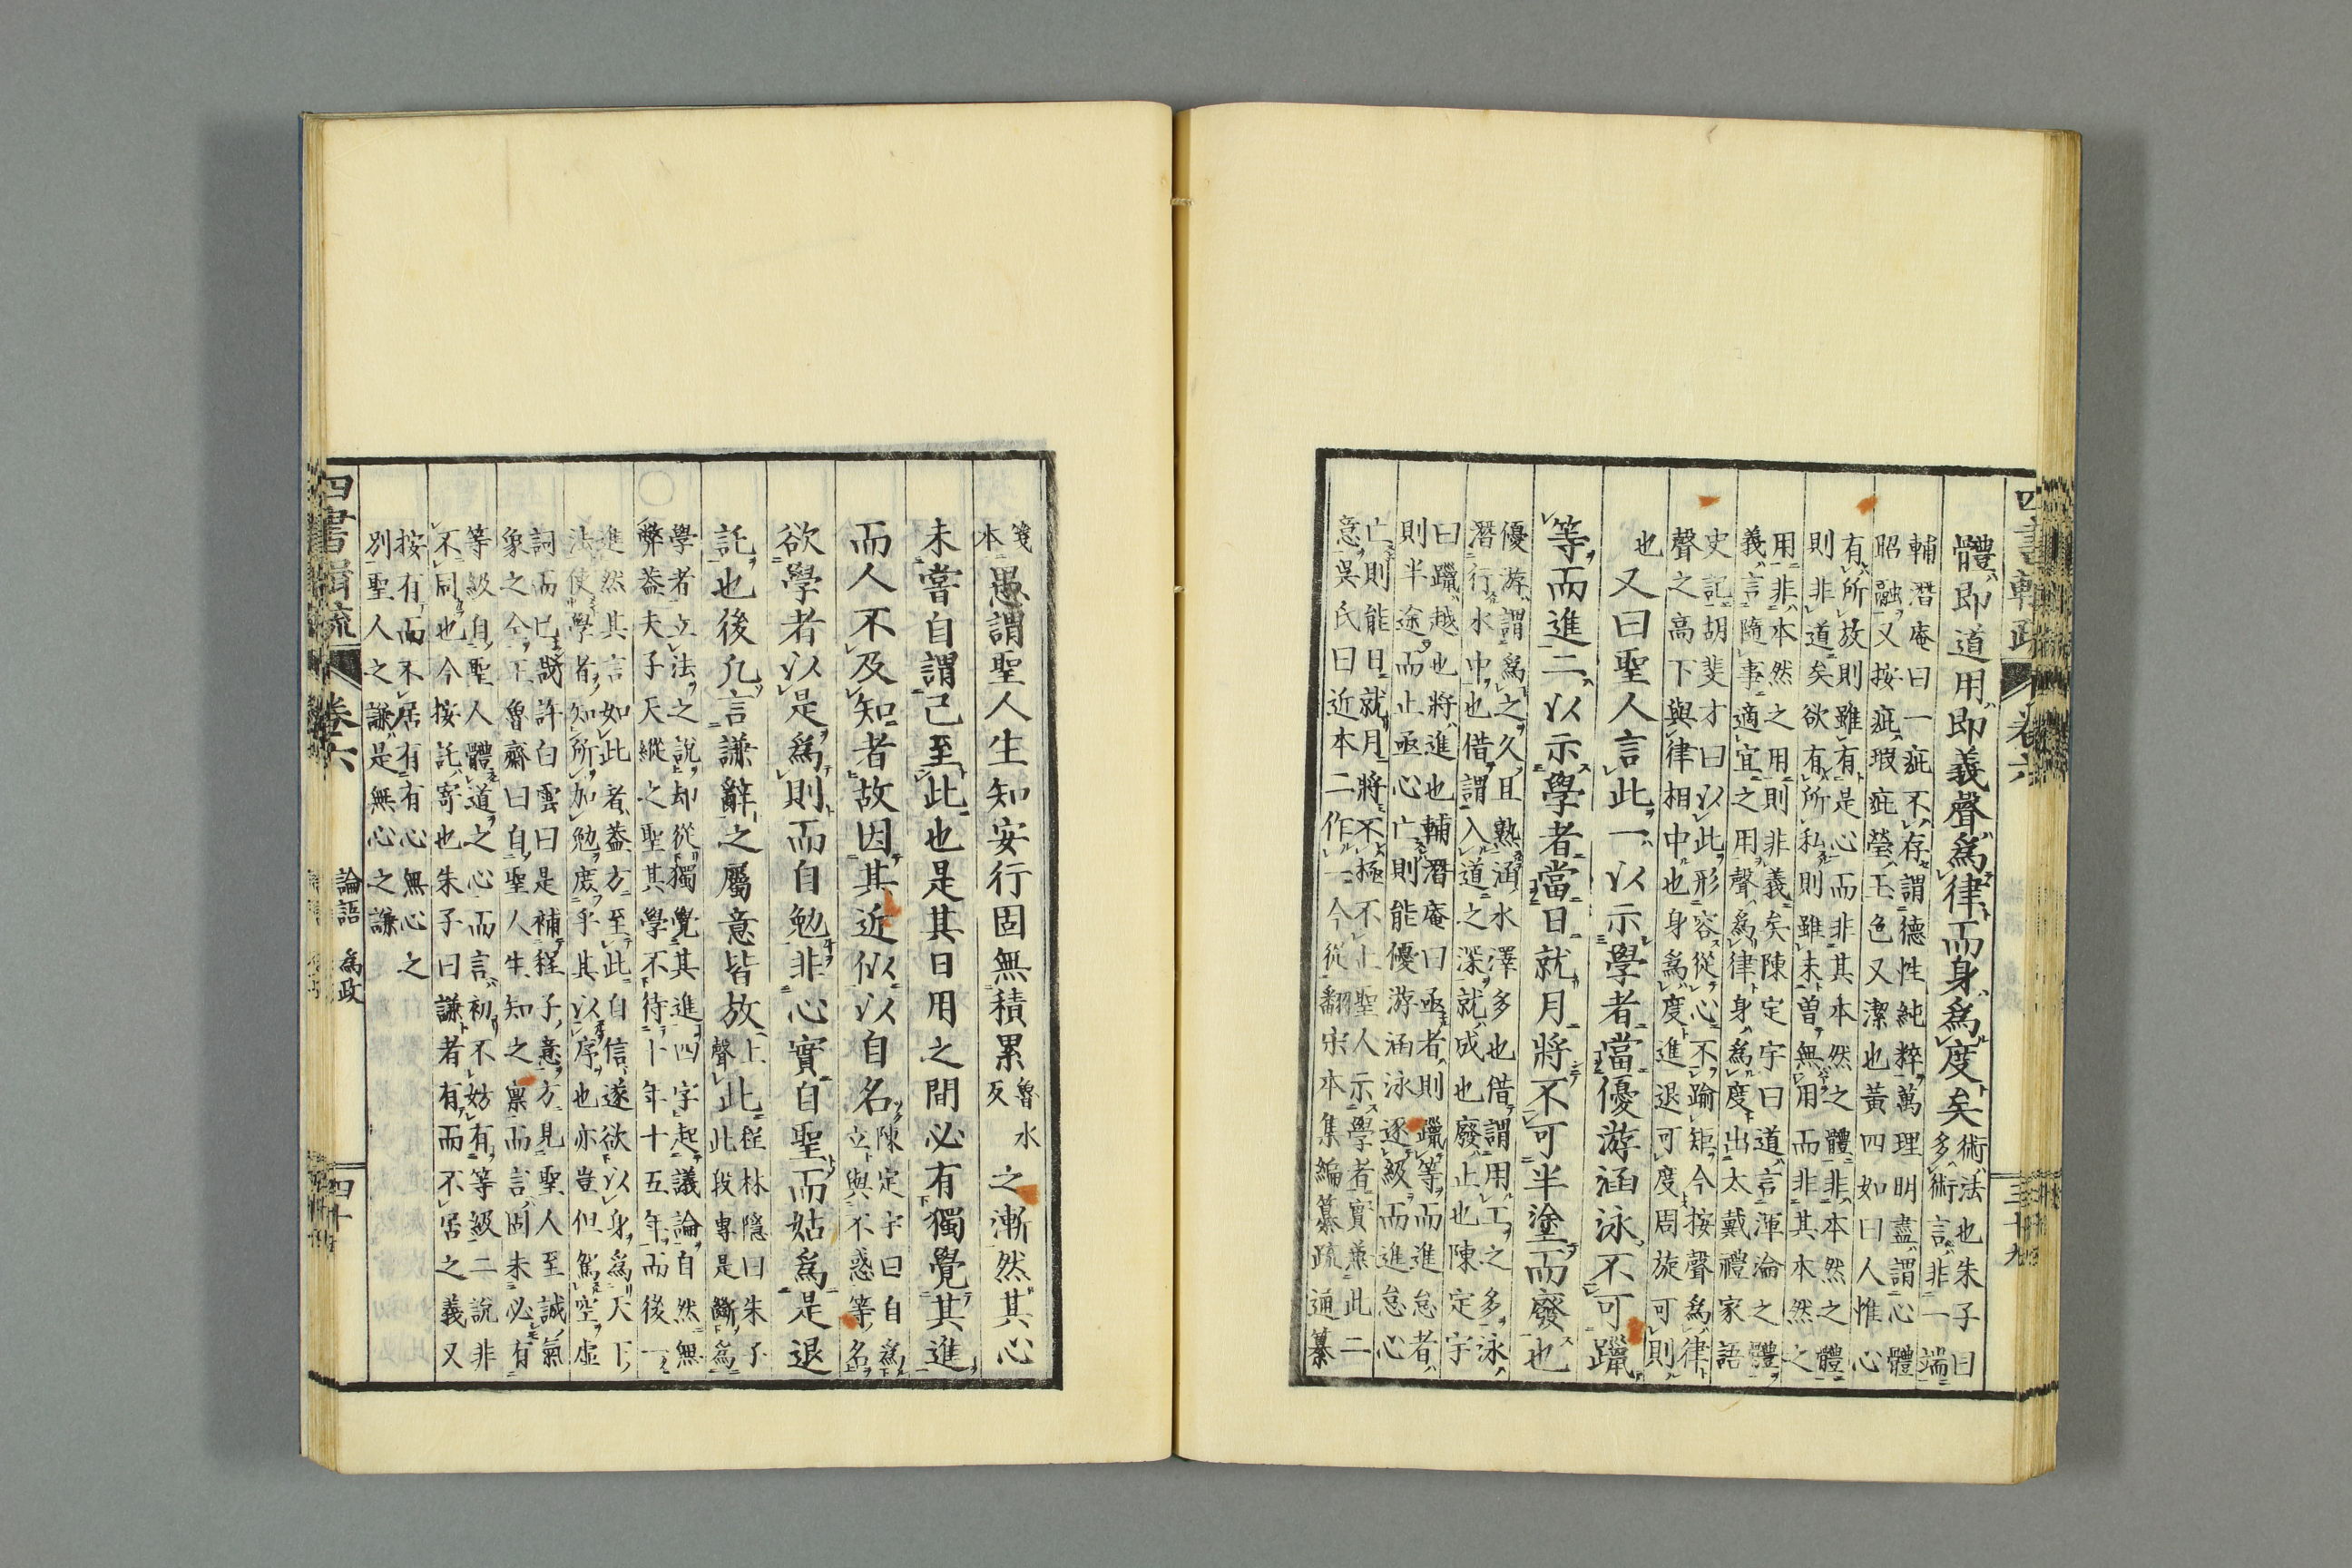 四書輯疏 卷六 三十九
體即道用即義聲爲律而身爲度矣術法也朱子曰
多術言非一端
輔潛庵曰一疵不存謂德性純粹萬理明盡謂心體
昭融又按疵瑕疵瑩玉色又潔也黃四如曰人惟心
有所放則雖有是心而非其本然之體非本然之體
則非道矣欲有所私則雖未曽無用而非其本然之
用非本然之用則非義矣陳定宇曰道言渾淪之體
義言隨事適宜之用聲爲律身爲度出太戴禮家語
史記胡斐才曰以此形容從心不踰矩今按聲爲律
聲之高下與律相中也身爲度進退可度周旋可則
也又曰聖人言此一以示學者當優游涵泳不可躐
等而進二以示學者當日就月將不可半塗而廢也
優游謂爲之久且熟涵水澤多也借謂用工之多泳
潛行水中也借謂入道之深就成也廢止也陳定宇
曰躐越也將進也輔潛庵曰亟者則躐等而進怠者
則半途而止亟心亡則能優游涵泳逐級而進怠心
亡則能日就月將不極不止聖人示學者實兼此二
意吳氏曰近本二作一今從翻宋本集編纂疏通纂
箋
本
愚謂聖人生知安行固無積累魯水反之漸然其心
未嘗自謂己至此也是其日用之間必有獨覺其進
而人不及知者故因其近似以自名陳定宇曰自爲
立與不惑等名
欲學者以是爲則而自勉非心實自聖而姑爲是退
託也後凡言謙辭之屬意皆放上聲此程林隱曰朱子
此此段專是斷爲
學者立法之說却從獨覺其進四字起議論自然無
弊蓋夫子天縱之聖其學不待十年十五年而後一
進然其言如此者蓋方至此自信遂欲以身爲天下
法使學者知所加勉度乎其以序也亦豈但駕空虛
詞而已哉許白雲曰是補程子意方見聖人至誠氣
象之全王魯齋曰自聖人生知之禀而言固未必有
等級自聖人體道之心而言初不妨有等級二說非
不同也今按託寄也朱子曰謙者有而不居之義又
按有而不居有有心無心之
別聖人之謙是無心之謙
四書輯疏 卷六 論語 爲政 四十